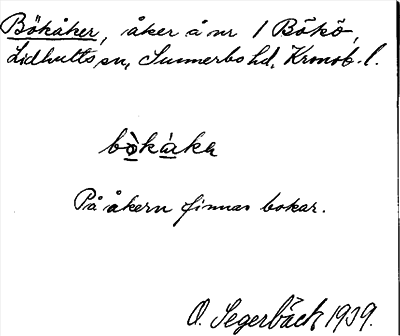 Bökåker, åker å nr 1 Bökö,
Lidhults sn, Sunnerbo hd, Kronob. l.
bòkáka
På åkern finnas bokar.
O. Segerbäck 1939.